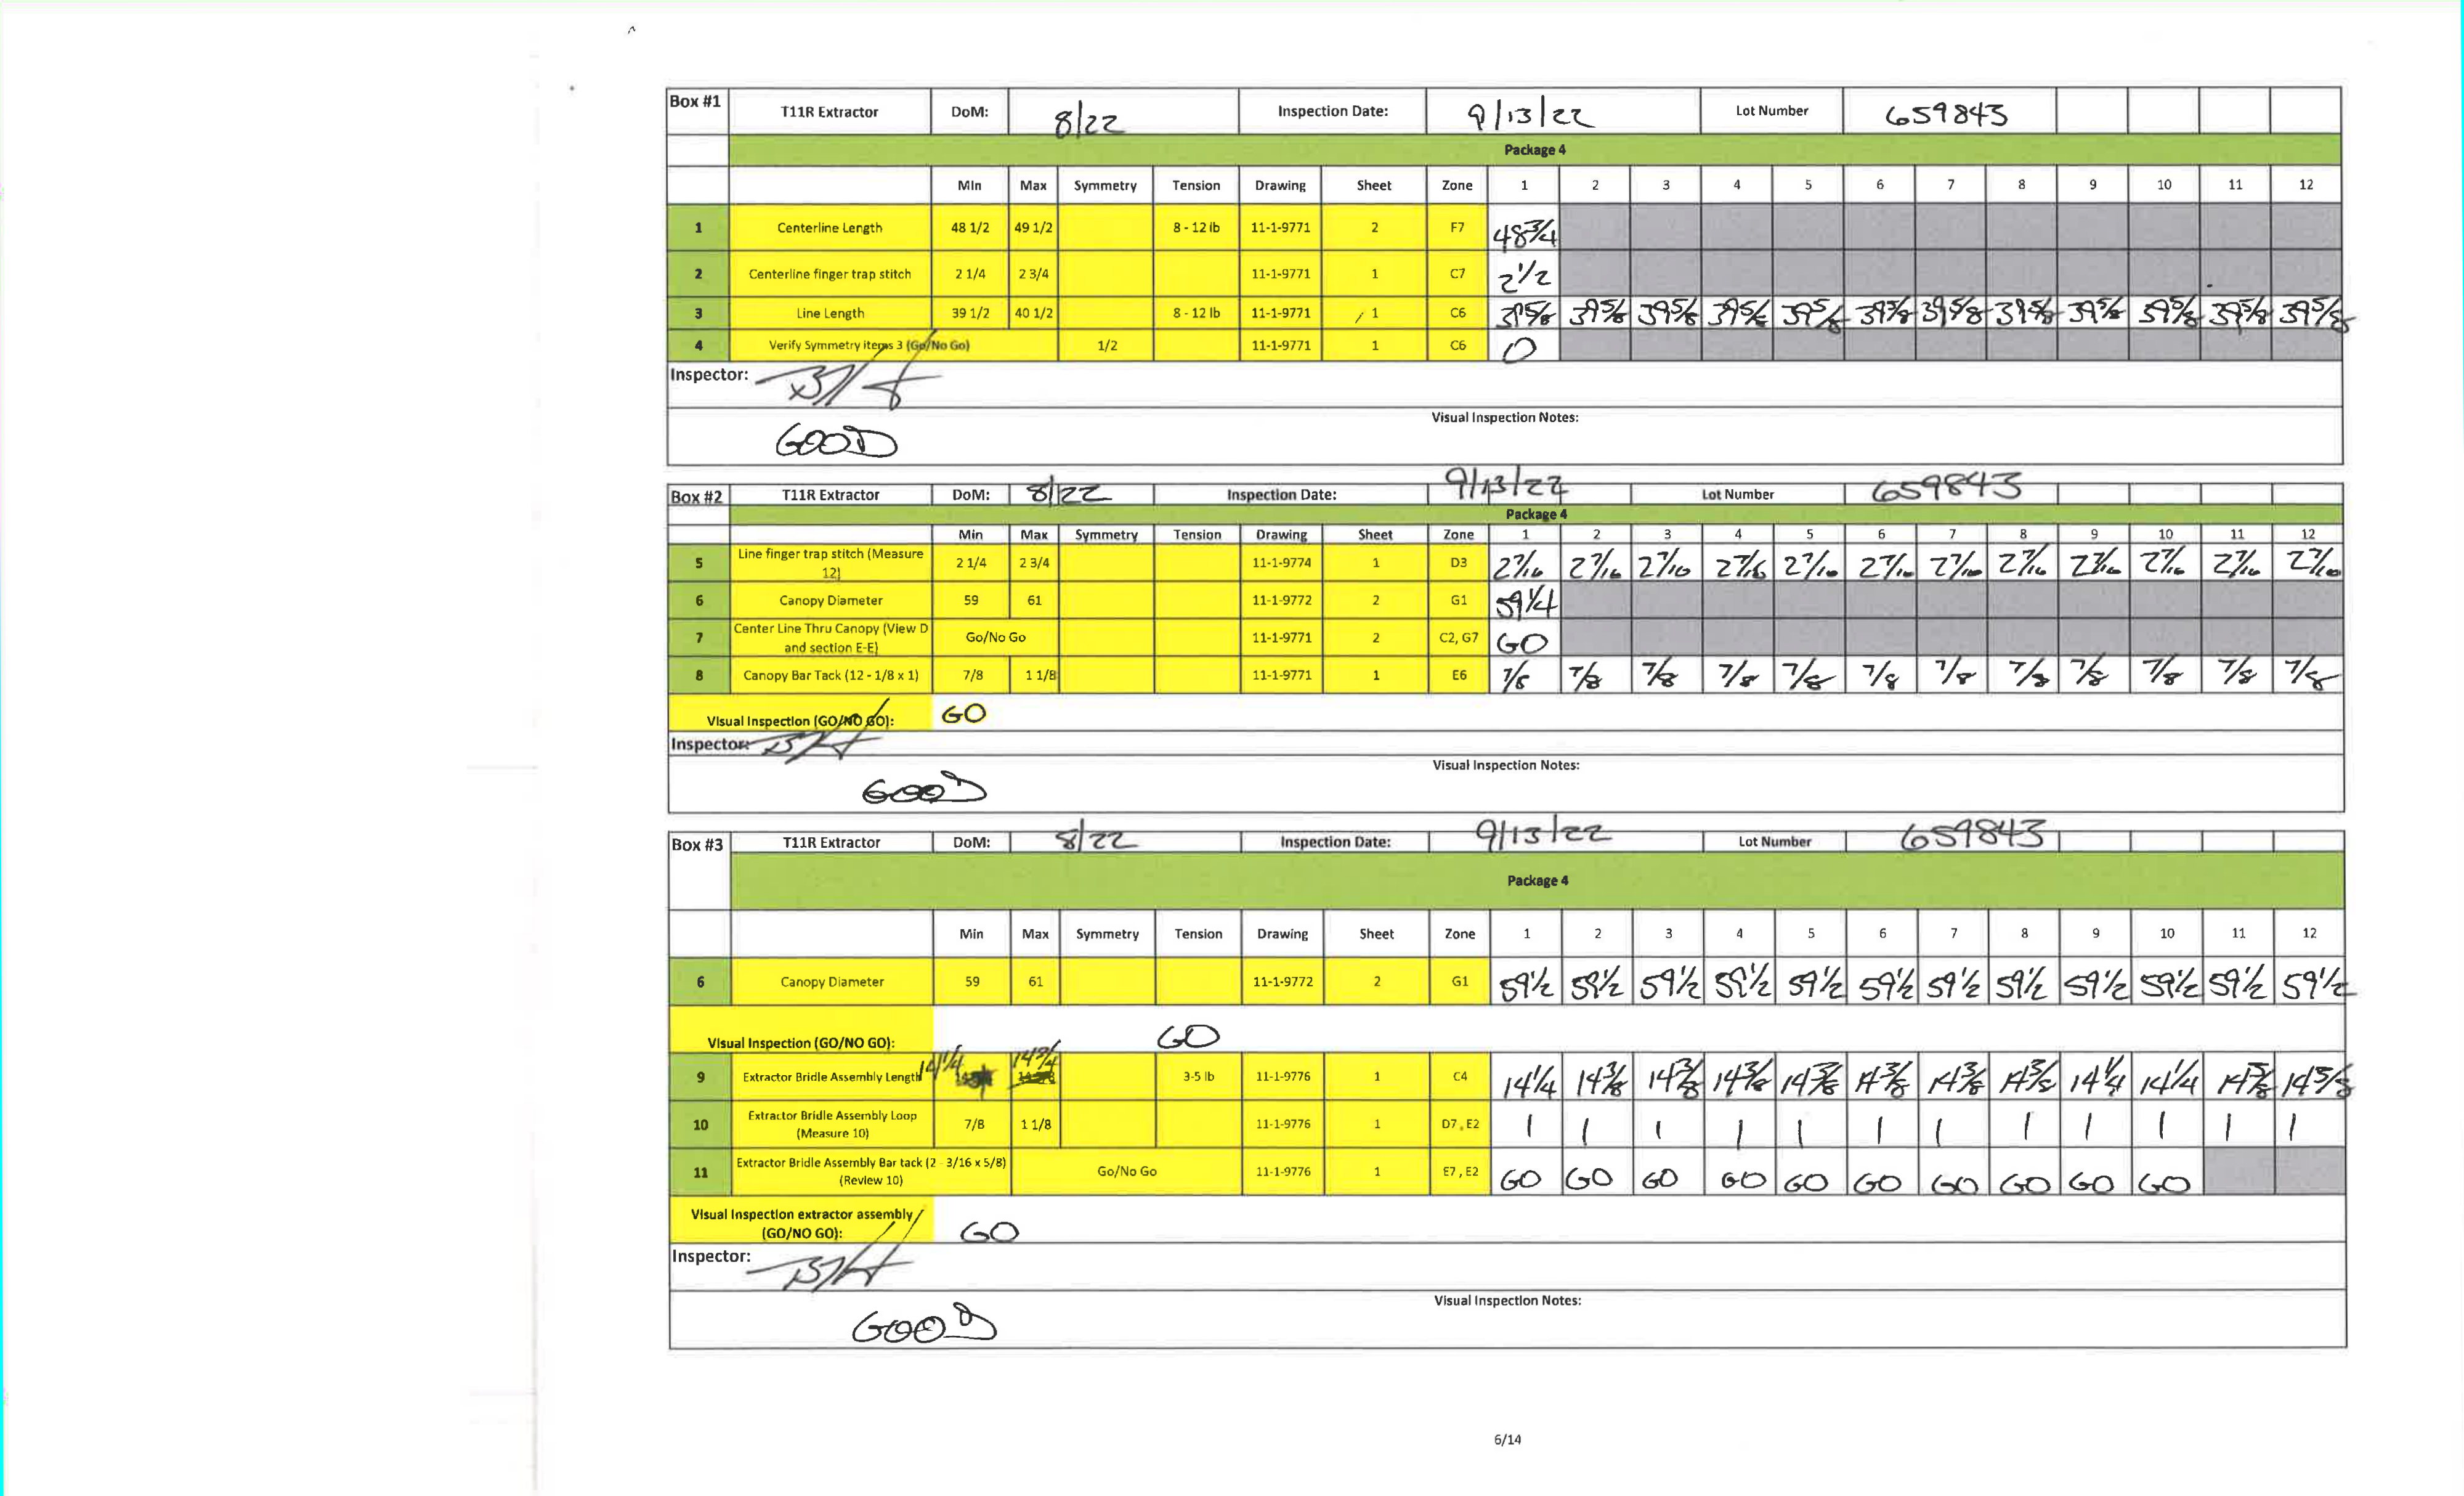 Box #1 T11R Extractor DoM: 8/22 Inspection Date: 9/13/22 Lot Number 659843
Package 4
Min Max Symmetry Tension Drawing Sheet Zone 1 2 3 4 5 6 7 8 9 10 11 12
1 Centerline Length 48 1/2 49 1/2 8 - 12 lb 11-1-9771 2 F7 48 3/4
2 Centerline finger trap stitch 2 1/4 2 3/4 11-1-9771 1 C7 2 1/2
3 Line Length 39 1/2 40 1/2 8 - 12 lb 11-1-9771 1 C6 39 5/8 39 5/8 39 5/8 39 5/8 39 5/8 39 5/8 39 5/8 39 5/8 39 5/8 39 5/8 39 5/8 39 5/8
4 Verify Symmetry items 3 (Go/No Go) 1/2 11-1-9771 1 C6 0
Inspector:
Visual Inspection Notes:
GOOD
Box #2 T11R Extractor DoM: 8/22 Inspection Date: 9/13/22 Lot Number 659843
Package 4
Min Max Symmetry Tension Drawing Sheet Zone 1 2 3 4 5 6 7 8 9 10 11 12
5 Line finger trap stitch (Measure 12) 2 1/4 2 3/4 11-1-9774 1 D3 2 7/16 2 7/16 2 7/16 2 7/16 2 7/16 2 7/16 2 7/16 2 7/16 2 7/16 2 7/16 2 7/16 2 7/16
6 Canopy Diameter 59 61 11-1-9772 2 G1 59 1/4
7 Center Line Thru Canopy (View D and section E-E) Go/No Go 11-1-9771 2 C2, G7 GO
8 Canopy Bar Tack (12 - 1/8 x 1) 7/8 1 1/8 11-1-9771 1 E6 7/8 7/8 7/8 7/8 7/8 7/8 7/8 7/8 7/8 7/8 7/8 7/8
Visual Inspection (GO/NO GO): GO
Inspector:
Visual Inspection Notes:
GOOD
Box #3 T11R Extractor DoM: 8/22 Inspection Date: 9/13/22 Lot Number 659843
Package 4
Min Max Symmetry Tension Drawing Sheet Zone 1 2 3 4 5 6 7 8 9 10 11 12
6 Canopy Diameter 59 61 11-1-9772 2 G1 59 1/2 59 1/2 59 1/2 59 1/2 59 1/2 59 1/2 59 1/2 59 1/2 59 1/2 59 1/2 59 1/2 59 1/2
Visual Inspection (GO/NO GO): GO
9 Extractor Bridle Assembly Length 14 1/4 14 3/4 3-5 lb 11-1-9776 1 C4 14 1/4 14 3/8 14 3/8 14 3/8 14 3/8 14 3/8 14 3/8 14 3/8 14 1/4 14 1/4 14 3/8 14 3/8
10 Extractor Bridle Assembly Loop (Measure 10) 7/8 1 1/8 11-1-9776 1 D7, E2 1 1 1 1 1 1 1 1 1 1 1 1
11 Extractor Bridle Assembly Bar tack (2 - 3/16 x 5/8) (Review 10) Go/No Go 11-1-9776 1 E7, E2 GO GO GO GO GO GO GO GO GO GO
Visual Inspection extractor assembly (GO/NO GO): GO
Inspector:
Visual Inspection Notes:
GOOD
6/14